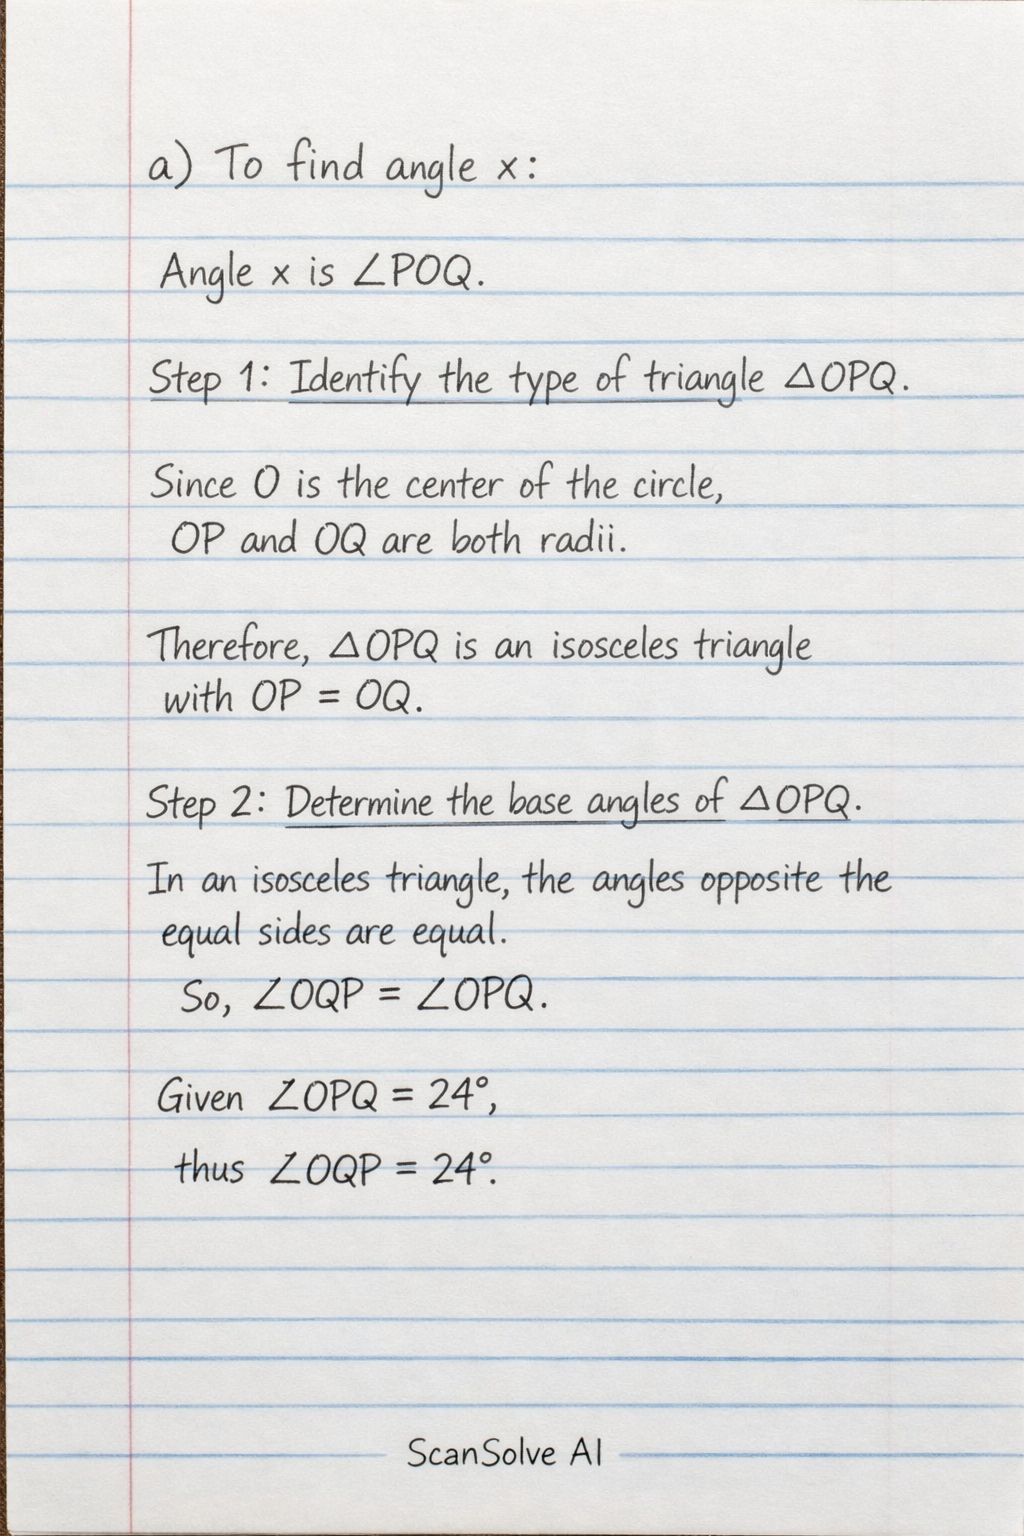 a) To find angle x:
Angle x is ∠POQ.
Step 1: Identify the type of triangle △OPQ.
Since O is the center of the circle,
OP and OQ are both radii.
Therefore, △OPQ is an isosceles triangle
with OP = OQ.
Step 2: Determine the base angles of △OPQ.
In an isosceles triangle, the angles opposite the
equal sides are equal.
So, ∠OQP = ∠OPQ.
Given ∠OPQ = 24°,
thus ∠OQP = 24°.
ScanSolve AI